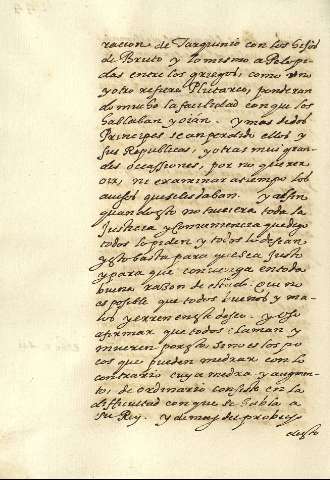 racion de Tarquinio con los hijos
de Bruto y lo mismo a Pelopi
das entre los griegos, como vno
y otro refiere Plutarco, ponderan
do mucho la facilidad con que los
hablaban y oian. y mas de dos
Principes se an perdido ellos y
sus Republicas, y otras muy gran
des ocassiones, por no querer
oir, ni examinar a tiempo los
auisos que se les daban. y al fin
quando esto no tuuiera toda la
Justicia y conueniencia que digo
todos lo piden y todos lo desean
y esto basta para que sea Justo
y para que conuenga en toda
buena razon de estado. que no
es posible que todos buenos y ma
los yerren en este deseo. y oso
afirmar que todos claman y
mueren por esto. Si no es los po
cos que pueden medrar con lo
contrario cuya medra y augmen
to, de ordinario consiste en la
difficultad con que se habla a
su Rey. y demas del probecho
desto